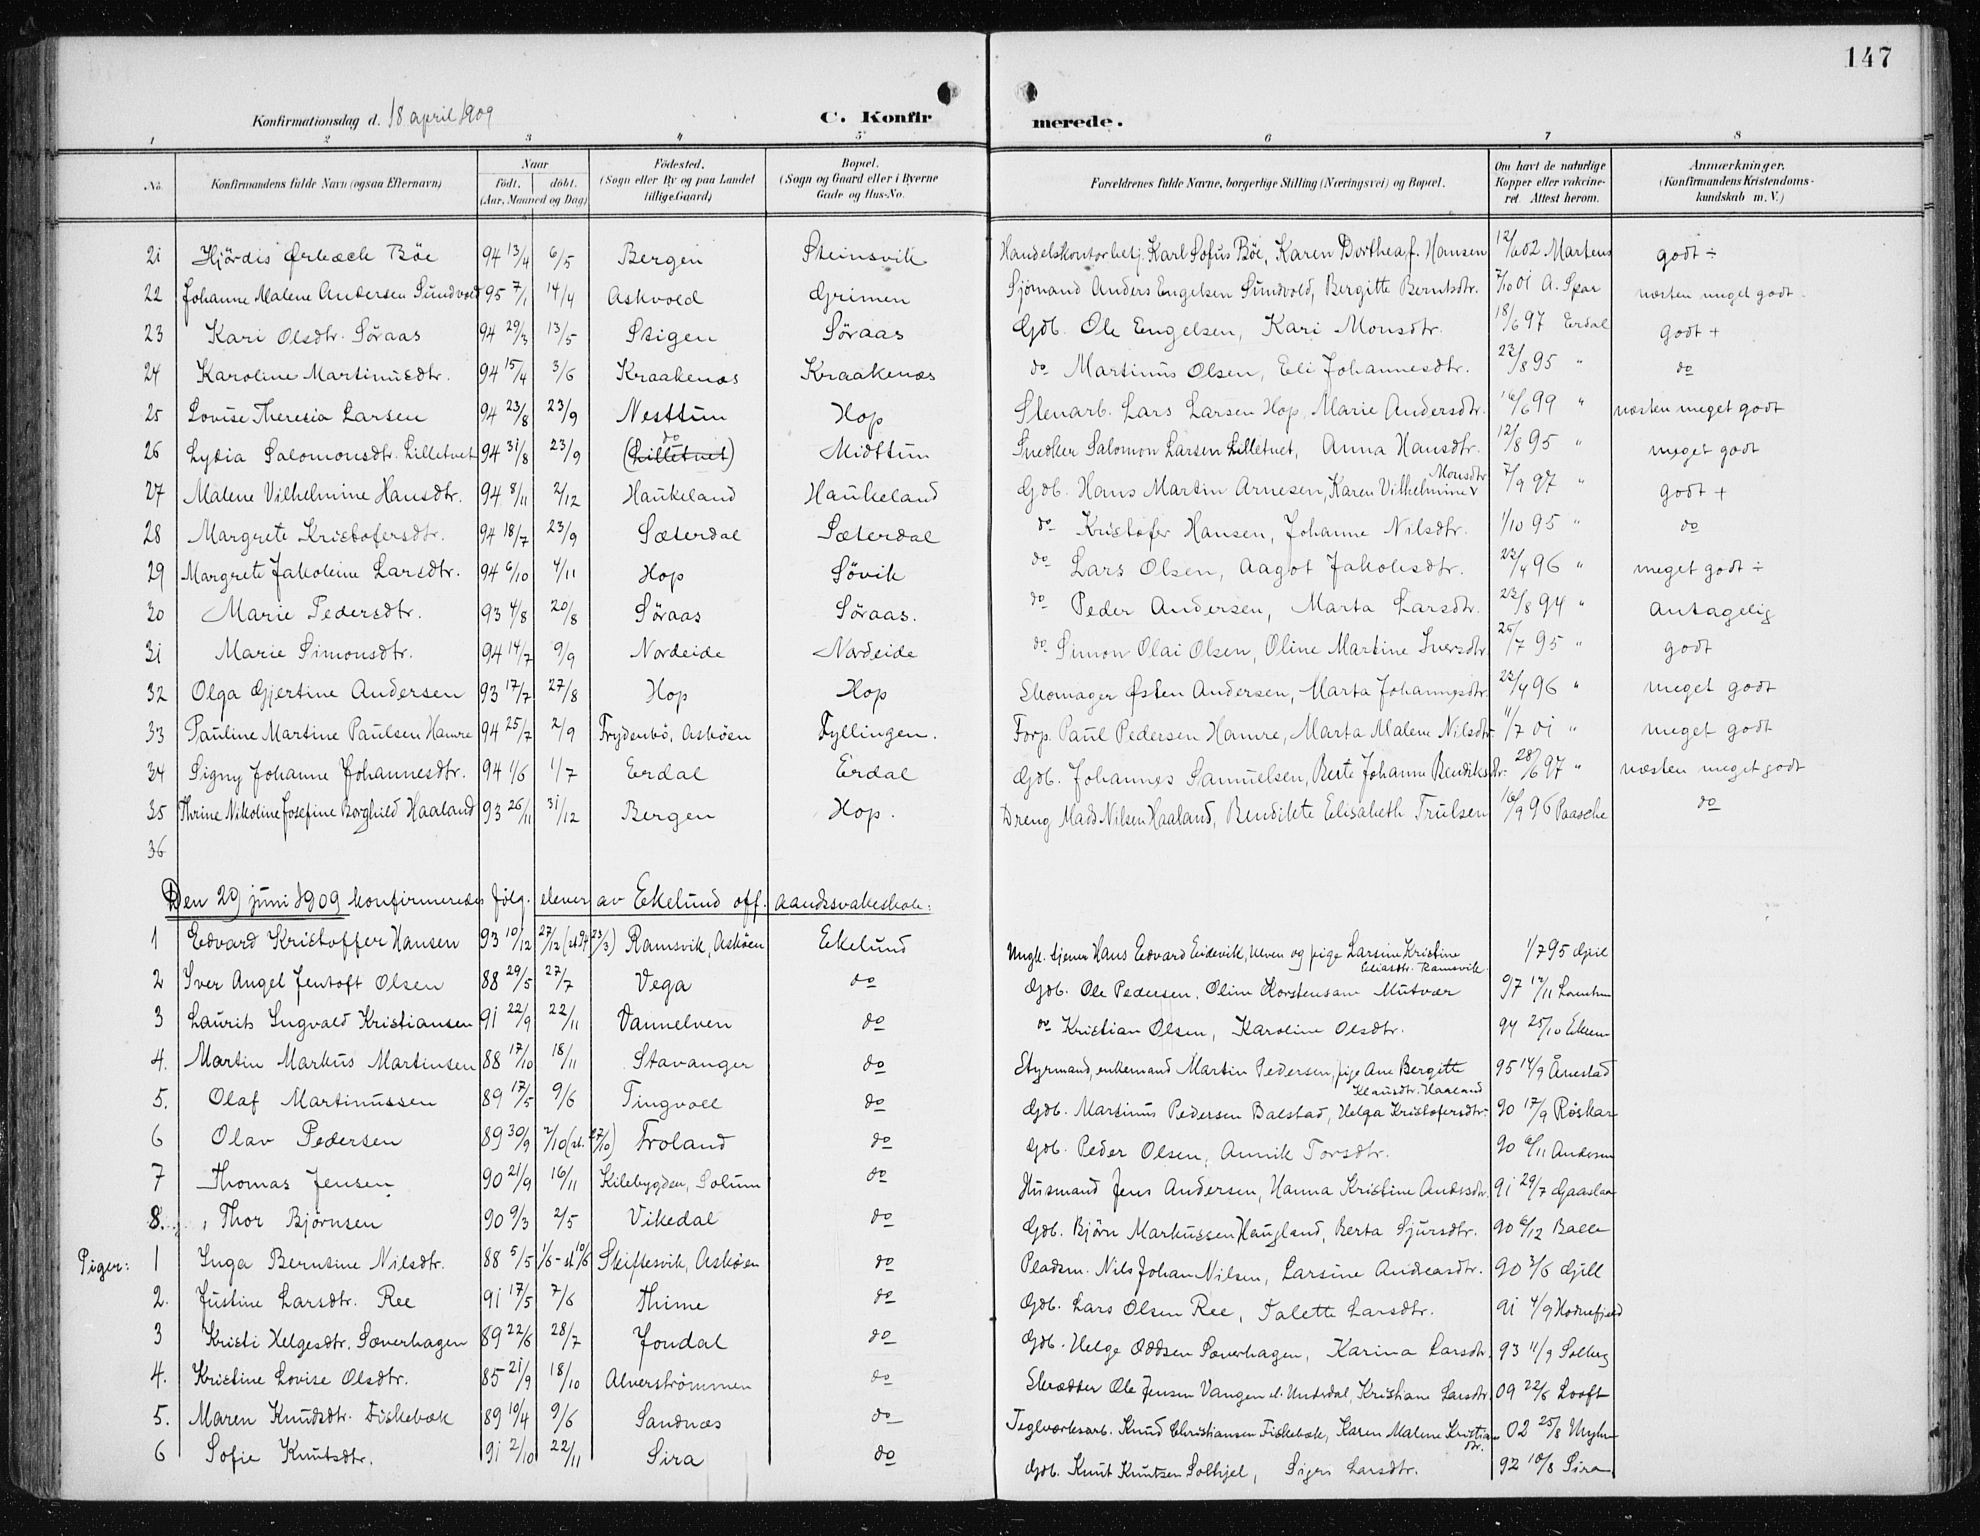 147
Konfirmationsdag d. 18 april 1909 C. Konfirmerede.
1 2 3 4 5 6 7 8
No. Konfirmandens fulde Navn (ogsaa Efternavn) Naar født, døbt. (Aar, Maaned og Dag) Fødested. (Sogn eller By og paa Landet tillige Gaard) Bopæl. (Sogn og Gaard eller i Byerne Gade og Hus-No. Forældrenes fulde Navne, borgerlige Stilling (Næringsvei) og Bopæl. Om havt de naturlige Kopper eller vakcineret. Attest herom. Anmærkninger. (Konfirmandens Kristendomskundskab m. V.)
21 Hjördis Ørbæck Böe 94 13/4 6/5 Bergen Steinsvik Handelskontorbetj. Karl Sofus Böe, Karen Dorthea f. Hansen 12/6 02 Martens godt ÷
22 Johanne Malene Andersen Sundvold 95 7/1 14/4 Askvold Grimen Sjömand Anders Engelsen Sundvold, Bergitte Berntsdtr. 7/10 01 A. Spar næsten meget godt.
23 Kari Olsdtr. Söraas 94 29/3 13/5 Stigen Söraas Gdb. Ole Engelsen, Kari Monsdtr. 18/6 97 Erdal godt +
24 Karoline Martinusdtr. 94 15/4 3/6 Kraakenæs Kraakenæs do Martinus Olsen, Eli Johannesdtr. 23/8 95 " do
25 Lovise Theresia Larsen 94 23/8 23/9 Nesttun Hop Stenarb. Lars Larsen Hop, Marie Andersdtr. 16/6 99 " næsten meget godt
26 Lydia Salomonsdtr. Lilletvet 94 31/8 23/9 do (Lilletvet) Midttun Snedker Salomon Larsen Lilletvet, Anna Hansdtr. 12/8 95 " meget godt
27 Malene Vilhelmine Hansdtr. 94 8/11 2/12 Haukeland Haukeland Gdb. Hans Martin Arnesen, Karen Vilhelmine Monsdtr 7/9 97 " godt +
28 Margrete Kristofersdtr. 94 18/7 23/9 Sæterdal Sæterdal do Kristofer Hansen, Johanne Nilsdtr. 1/10 95 " do
29 Margrete Jakobine Larsdtr. 94 6/10 4/11 Hop Sövik do Lars Olsen, Aagot Jakobsdtr. 22/4 96 " meget godt ÷
30 Marie Pedersdtr. 93 4/8 20/8 Söraas Söraas. do Peder Andersen, Marta Larsdtr. 23/8 94 " Antagelig
31 Marie Simonsdtr. 94 14/7 9/9 Nordeide Nordeide do Simon Olai Olsen, Oline Martine Iversdtr 25/7 95 " godt
32 Olga Gjertine Andersen 93 17/7 27/8 Hop Hop Skomager Østen Andersen, Marta Johannesdtr. 22/4 96 " meget godt
33 Pauline Martine Paulsen Hamre 94 25/7 2/9 Frydenbö, Asköen Fyllingen. Forp. Paul Pedersen Hamre, Marta Malene Nilsdtr. 11/7 01 " meget godt
34 Signy Johanne Johannesdtr. 94 1/6 1/7 Erdal Erdal Gdb. Johannes Samuelsen, Berte Johanne Bendiksdtr. 28/6 97 " næsten meget godt
35 Thrine Nikoline Josefine Borghild Haaland 93 26/11 31/12 Bergen Hop. Dreng Mads Nilsen Haaland, Bendikte Elisabeth Trulsen 16/9 96 Paasche do
36
Den 29 juni 1909 konfirmeredes følg. elever av Ekelund off. aandssvakeskole:
1 Edvard Kristoffer Hansen 93 10/12 27/12 (st 94 23/3) Ramsvik, Asköen Ekelund Ungk. tjener Hans Edvard Eidevik, Ulven og pige Larsine Kristine Eliasdtr. Ramsvik. 1/7 95 Gjeil
2 Iver Angel Jentoft Olsen 88 29/5 27/7 Vega do Gdb. Ole Pedersen, Oline Korstensam Mutvær 97 17/11
3 Laurits Ingvald Kristiansen 91 22/9 22/11 Vannelven do do Kristian Olsen, Karoline Olsdtr. 94 25/10
4. Martin Markus Martinsen 88 17/10 18/11 Stavanger do Styrmand, enkemand Martin Pedersen, pige Ane Bergitte Klausdtr. Haaland 95 14/9 Ånestad
5. Olaf Martinussen 89 17/5 9/6 Tingvoll do Gdb. Martinus Pedersen Balstad, Helga Kristofersdtr. 90 17/9 Röskar
6 Olav Pedersen 89 30/9 2/10 (st. 27/10) Froland do Gdb. Peder Olsen, Annik Torsdtr. 90 6/11 Andersen
7 Thomas Jensen 90 21/9 16/11 Kilebygden, Solum do Husmand Jens Andersen, Hanna Kristine Andersdtr. 91 29/7
8. Thor Björnsen 90 9/3 2/5 Vikedal do Gdb. Björn Markussen Haugland, Berta Sjursdtr. 90 6/12 Balle
Piger: 1 Inga Berntine Nilsdtr. 88 5/5 1/6 - st 10/6 Skiftesvik, Asköen do Pladsm. Nils Johan Nilsen, Larsine Andreasdtr. 90 3/6 Gjill
2. Justine Larsdtr. Ree 91 17/5 7/6 Thime do Gdb. Lars Olsen Ree, Talette Larsdtr. 91 4/9 Hodnefjeld
3 Kristi Helgesdtr. Sæverhagen 89 22/6 28/7 Jondal do Gdb. Helge Oddsen Sæverhagen, Karina Larsdtr. 93 11/9 Solberg
4. Kristine Lovise Olsdtr. 85 21/9 18/10 Alverströmmen do Skrædder Ole Jensen Vangen el. Underdal, Kristiane Larsdtr 09 22/6 Looft
5. Maren Knudsdtr. Fiskebæk 89 10/4 9/6 Sandnæs do Teglværksarb. Knud Christiansen Fiskebæk, Karen Malene Kristiansdtr. 02 25/8
6 Sofie Knutsdtr. 91 2/10 22/11 Sira do Gdb. Knut Knutsen Solhjel, Sigri Larsdtr. 92 10/8 Sira